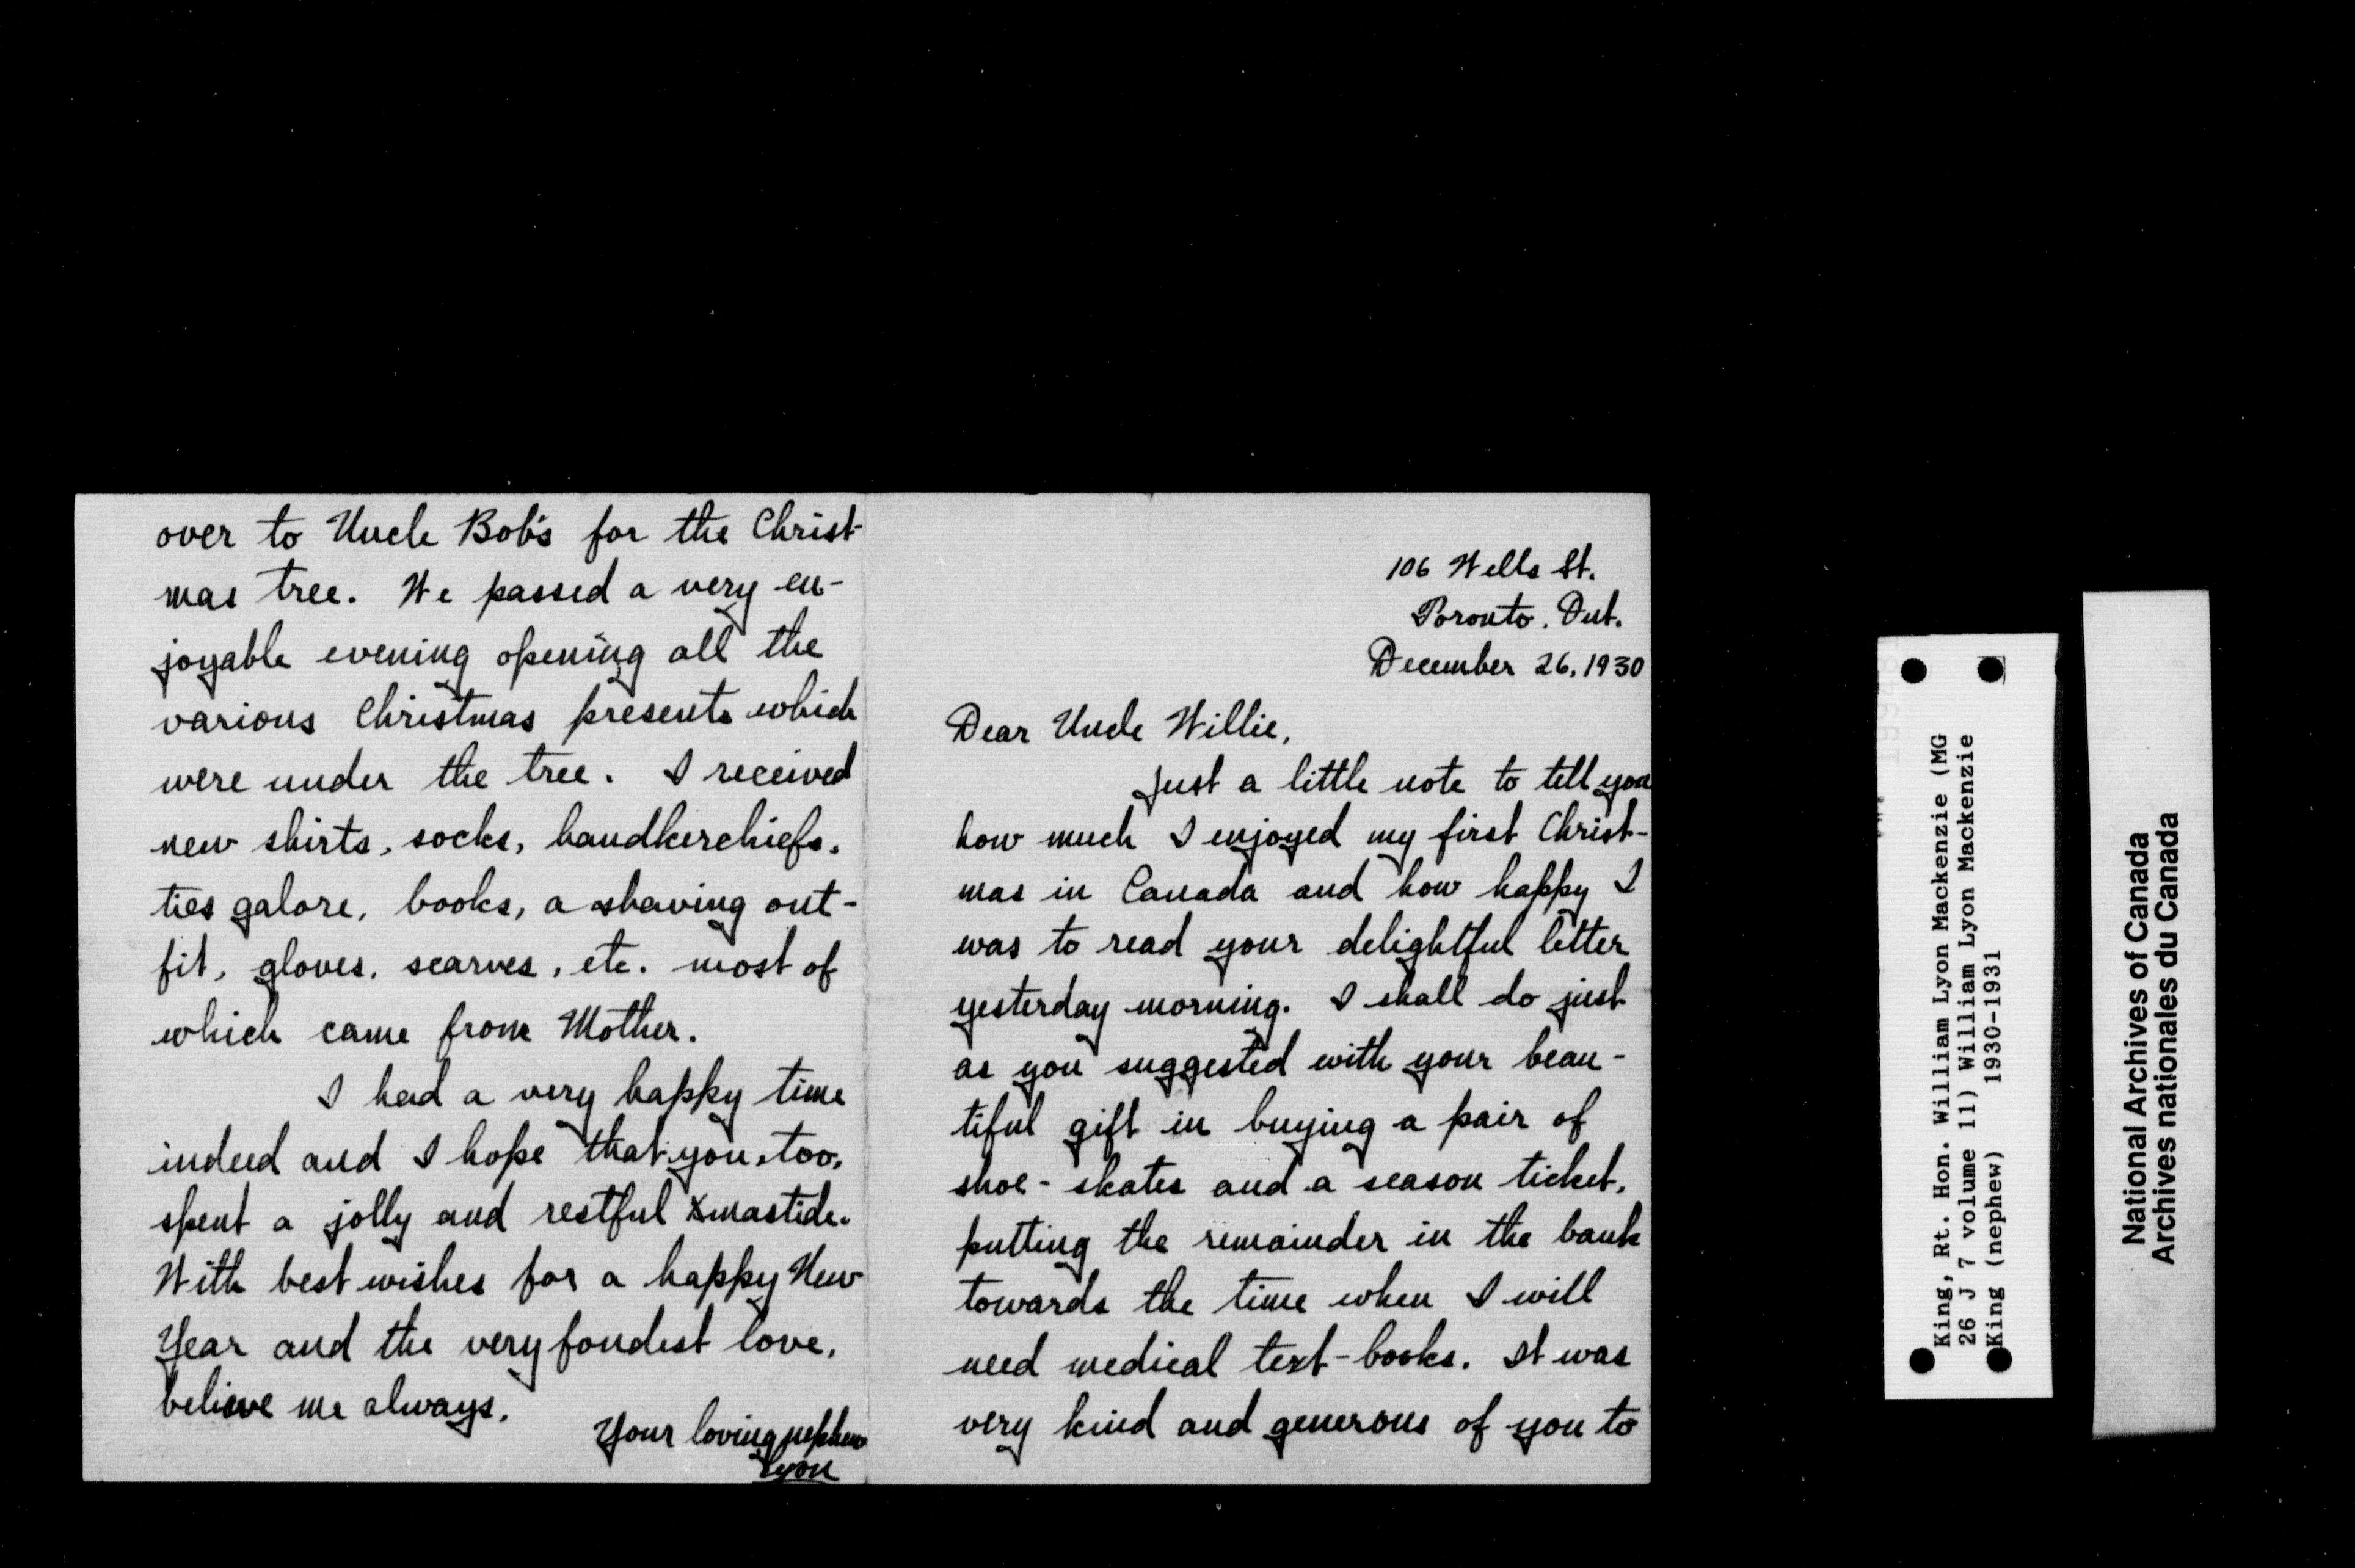 over to Uncle Bob's for the Christ-
mas tree. We passed a very en-
joyable evening opening all the
various Christmas presents which
were under the tree. I received
new shirts, socks, handkerchiefs,
ties galore, books, a shaving out-
fit, gloves, scarves, etc. most of
which came from Mother.
I had a very happy time
indeed and I hope that you, too,
spent a jolly and restful Xmastide.
With best wishes for a happy New
Year and the very fondest love,
believe me always,
Your loving nephew
Lyon
106 Wells St.
Toronto, Ont.
December 26, 1930
Dear Uncle Willie,
Just a little note to tell you
how much I enjoyed my first Christ-
mas in Canada and how happy I
was to read your delightful letter
yesterday morning. I shall do just
as you suggested with your beau-
tiful gift in buying a pair of
shoe-skates and a season ticket,
putting the remainder in the bank
towards the time when I will
need medical text-books. It was
very kind and generous of you to
King, Rt. Hon. William Lyon Mackenzie (MG
26 J 7 volume 11) William Lyon Mackenzie
King (nephew) 1930-1931
National Archives of Canada
Archives nationales du Canada